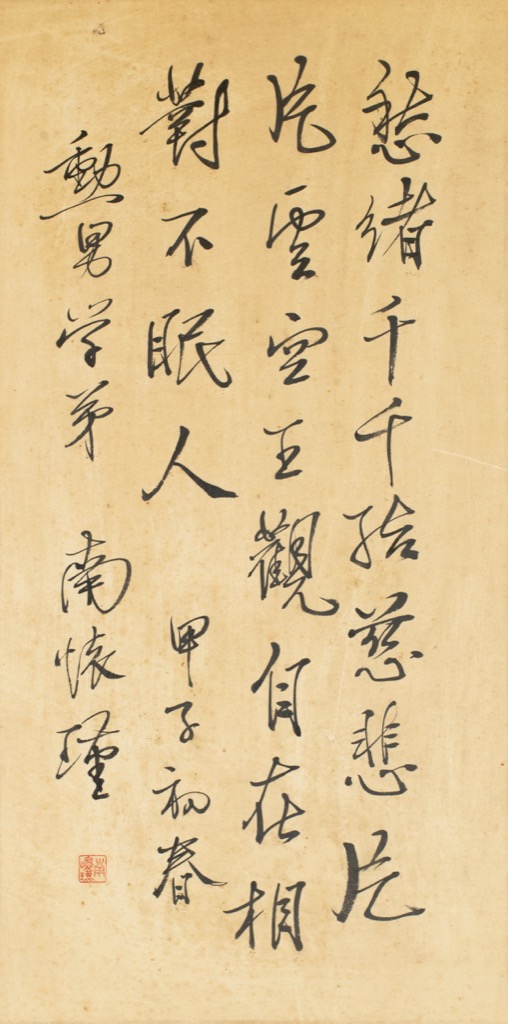 愁緒千千結慈悲片
片雲空王觀自在相
對不眠人 甲子初春
勲男学弟 南懷瑾